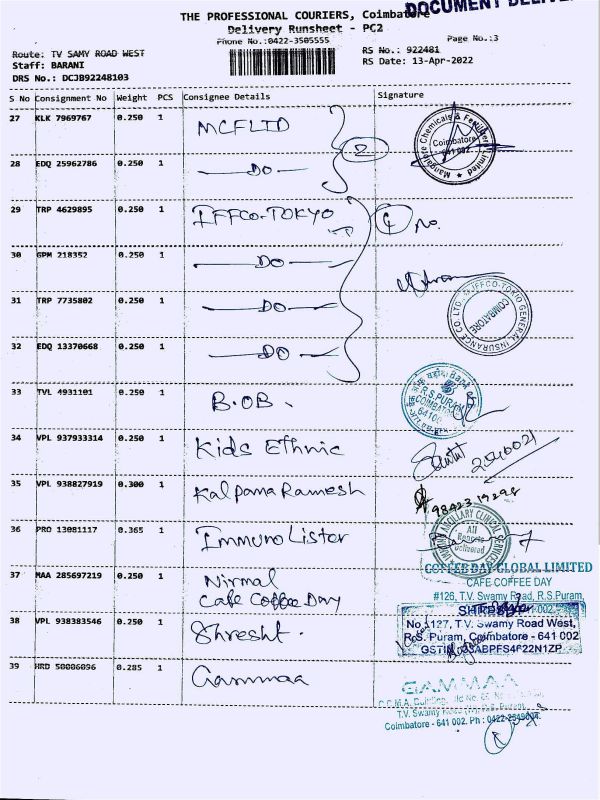 DOCUMENT DELIVE
THE PROFESSIONAL COURIERS, Coimbatore
Delivery Runsheet - PC2
Phone No.:0422-3505555
Page No.:3
Route: TV SAMY ROAD WEST
RS No.: 922481
Staff: BARANI
RS Date: 13-Apr-2022
DRS No.: DCJB92248103
S No Consignment No Weight PCS Consignee Details Signature
27 KLK 7969767 0.250 1 MCFLTD
2
Mangalore Chemicals & Fertilizers Limited
Coimbatore
641 002
28 EDQ 25962786 0.250 1 DO
29 TRP 4629895 0.250 1 IFFCO-TOKYO
4 No.
30 GPM 218352 0.250 1 DO
31 TRP 7735802 0.250 1 DO
IFFCO-TOKIO GENERAL INSURANCE CO. LTD.
COIMBATORE
32 EDQ 13370668 0.250 1 DO
33 TVL 4931101 0.250 1 B.O.B.
Bank
R.S.PURAM
COIMBATORE
34 VPL 937933314 0.250 1 Kids Ethnic
2540021
35 VPL 938827919 0.300 1 Kalpana Ramesh
36 PRO 13081117 0.365 1 Immuno Lister
ANCILLARY CLINICAL SERVICES
All
Reports
Delivered
37 MAA 285697219 0.250 1 Nirmal
Cafe Coffee Day
COFFEE DAY GLOBAL LIMITED
CAFE COFFEE DAY
#126, T.V. Swamy Road, R.S.Puram,
38 VPL 938383546 0.250 1 Shresht.
No.1127, T.V. Swamy Road West,
R.S. Puram, Coimbatore - 641 002
39 HRD 50006096 0.285 1 Gammaa
GAMMAA
C.C.M.A. Building,
T.V. Swamy Road
Coimbatore - 641 002. Ph :